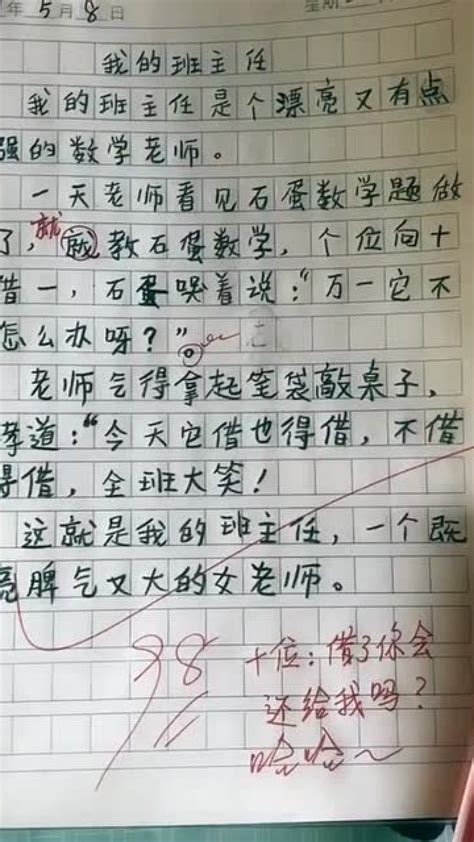 年 5 月 8 日 星期
我的班主任
我的班主任是个漂亮又有点
强的数学老师。
一天老师看见石蛋数学题做
了，就教石蛋数学，个位向十
借一，石蛋哭着说：“万一它不
怎么办呀？”
老师气得拿起笔袋敲桌子，
道：“今天它借也得借，不借
得借，全班大笑！
这就是我的班主任，一个既
亮脾气又大的女老师。
98
十位：借了你会
还给我吗？
哈哈～